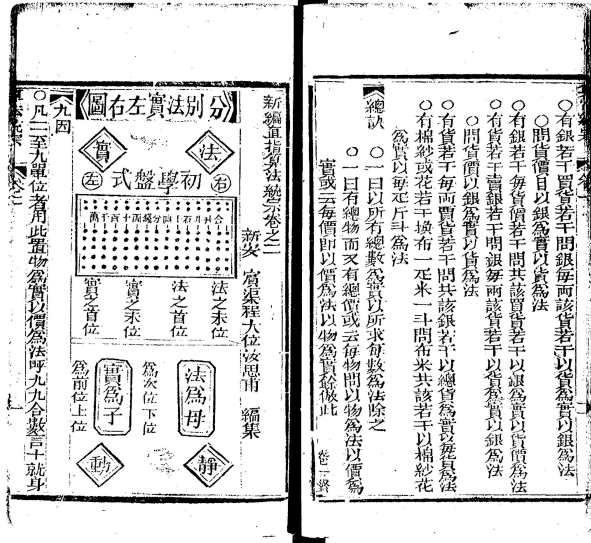 ○有銀若干買貨若干問銀每兩該貨若干以貨為實以銀為法
○問貨價目以銀為實以貨為法
○有銀若干每貨價若干問共該買貨若干以銀為實以貨價為法
○有貨若干賣銀若干問銀每兩該貨若干以貨為實以銀為法
○問貨價以銀為實以貨為法
○有貨若干每兩買貨若干問共該銀若干以總貨為實以每貨為法
○有棉紗或花若干換布一疋米一斗問布米共該若干以棉紗花
為實以每疋斤斗為法
總訣 ○一曰以所有總數為實以所求每數為法除之
○一曰有總物而又有總價或云每物問以物為法以價為
實或云每價即以價為法以物為實餘倣此
卷一終
新編直指算法統宗卷之二
新安 賓渠程大位汝思甫 編集
分別法實左右圖
法
實
右
初學盤式
左
法之末位
法之首位
實之末位
實之首位
法為母
為次位下位
實為子
為前位上位
靜
動
九因
○凡二至九單位者用此置物為實以價為法呼九九合數言十就身